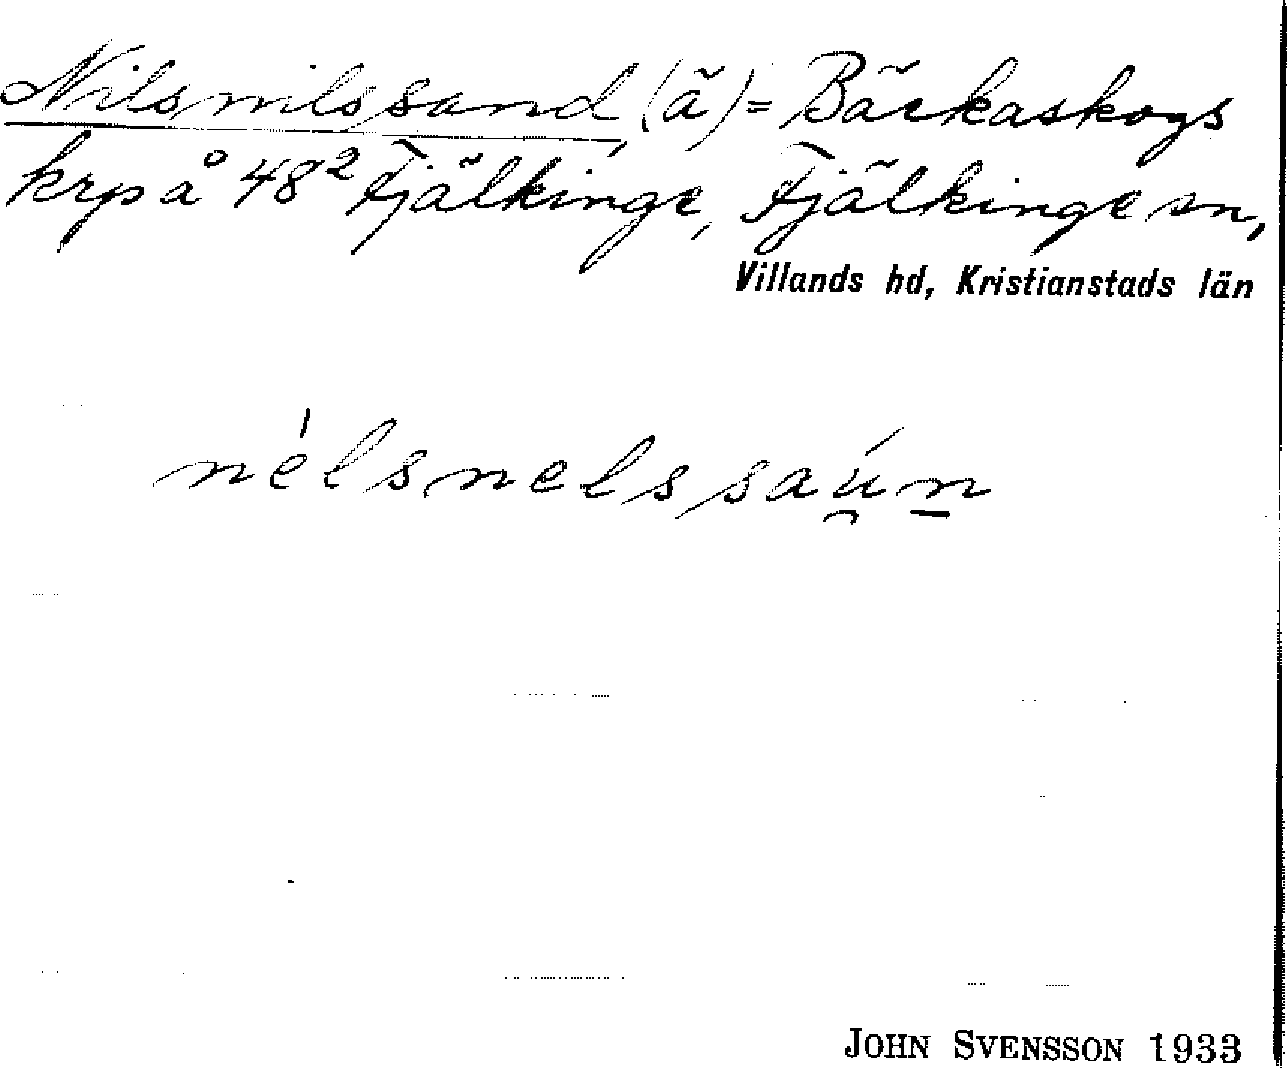 Nilsnilssand, (ä) = Bäckaskogs
krp å 48² Fjälkinge, Fjälkinge sn,
Villands hd, Kristianstads län
nélsnelssaún
JOHN SVENSSON 1933